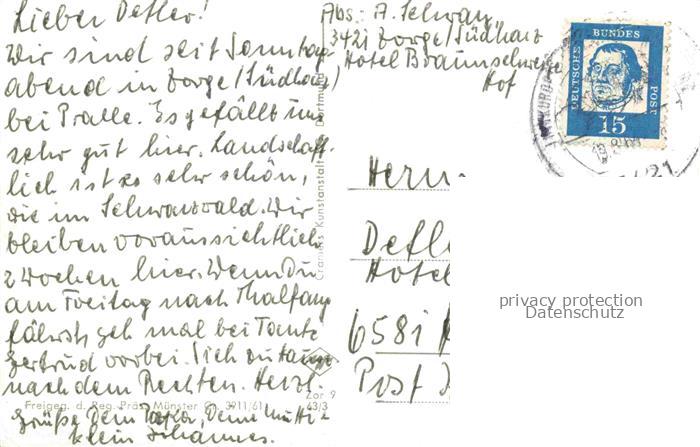 Lieber Detlev!
Wir sind seit Sonntag
abend in Zorge/Südharz,
bei Pralle. Es gefällt uns
sehr gut hier. Landschaft-
lich ist es sehr schön,
wie im Schwarzwald. Wir
bleiben voraussichtlich
2 Wochen hier. Wenn Du
am Freitag nach Thalfang
fährst, geh mal bei Tante
Gertrud vorbei. Sieh zu
nach dem Rechten. Herzl.
Grüße Dein Deine
klein Johannes.
Freigeg. d. Reg. Präs. Münster Nr. 3911/61
Zor 9
63/3
Cramers Kunstanstalt Dortmund
Abs.: A. Schwan
3421 Zorge/Südharz
Hotel Braunschweiger
Hof
DEUTSCHE BUNDESPOST
15
3421
Herrn
Detl
Hotel
6581
Post
privacy protection
Datenschutz